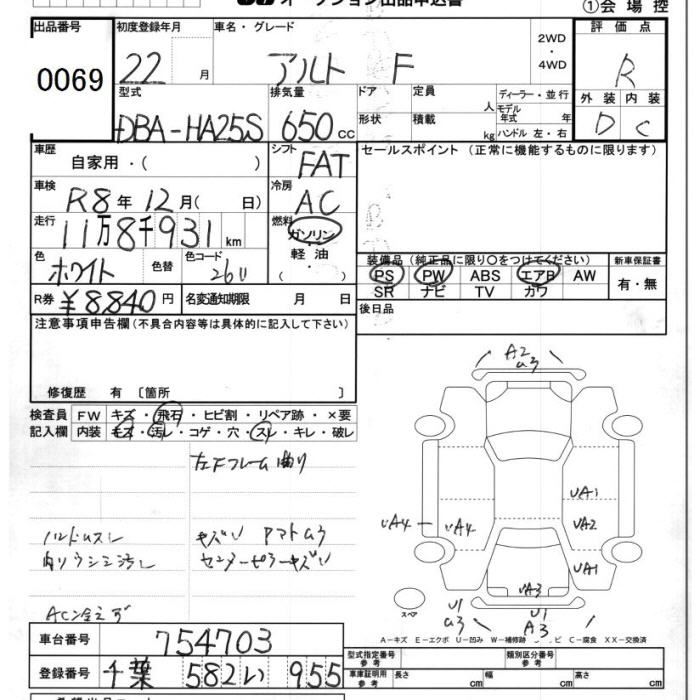 オークション出品申込書
①会場控
出品番号 0069
初度登録年月 22 月
車名・グレード アルト F
2WD・4WD
評価点 R
外装 D 内装 C
型式 DBA-HA25S
排気量 650 CC
ドア 形状
定員 人
積載 kg
ディーラー・並行
モデル年式 年
ハンドル 左・右
車歴 自家用・( )
シフト FAT
セールスポイント (正常に機能するものに限ります)
車検 R8年12月( 日)
冷房 AC
走行 11万8千931 km
燃料 ガソリン 軽油 ・( )
色 ホワイト 色替
色コード 26U
装備品 (純正品に限り〇をつけてください)
新車保証書
PS PW ABS エアB AW
SR ナビ TV カワ
有・無
R券 ¥8840円
名変通知期限 月 日
後日品
注意事項申告欄(不具合内容等は具体的に記入して下さい)
修復歴 有 〔箇所 〕
検査員記入欄
FW キズ・飛石・ヒビ割・リペア跡・×要
内装 キズ・汚レ・コゲ・穴・スレ・キレ・破レ
左Fフレーム曲り
ハンドルスレ
キズ
内張
センターピラーキズ
AC冷えず
A2
U3
UA4
UA4
UA1
UA2
UA1
UA3
スペア
U1
U3
U1
A3
A-キズ E-エクボ U-凹み W-補修跡 C-腐食 XX-交換済
車台番号 754703
型式指定番号 参考
類別区分番号 参考
登録番号 千葉 582 い 955
車庫証明用 参考 長さ cm 幅 cm 高さ cm